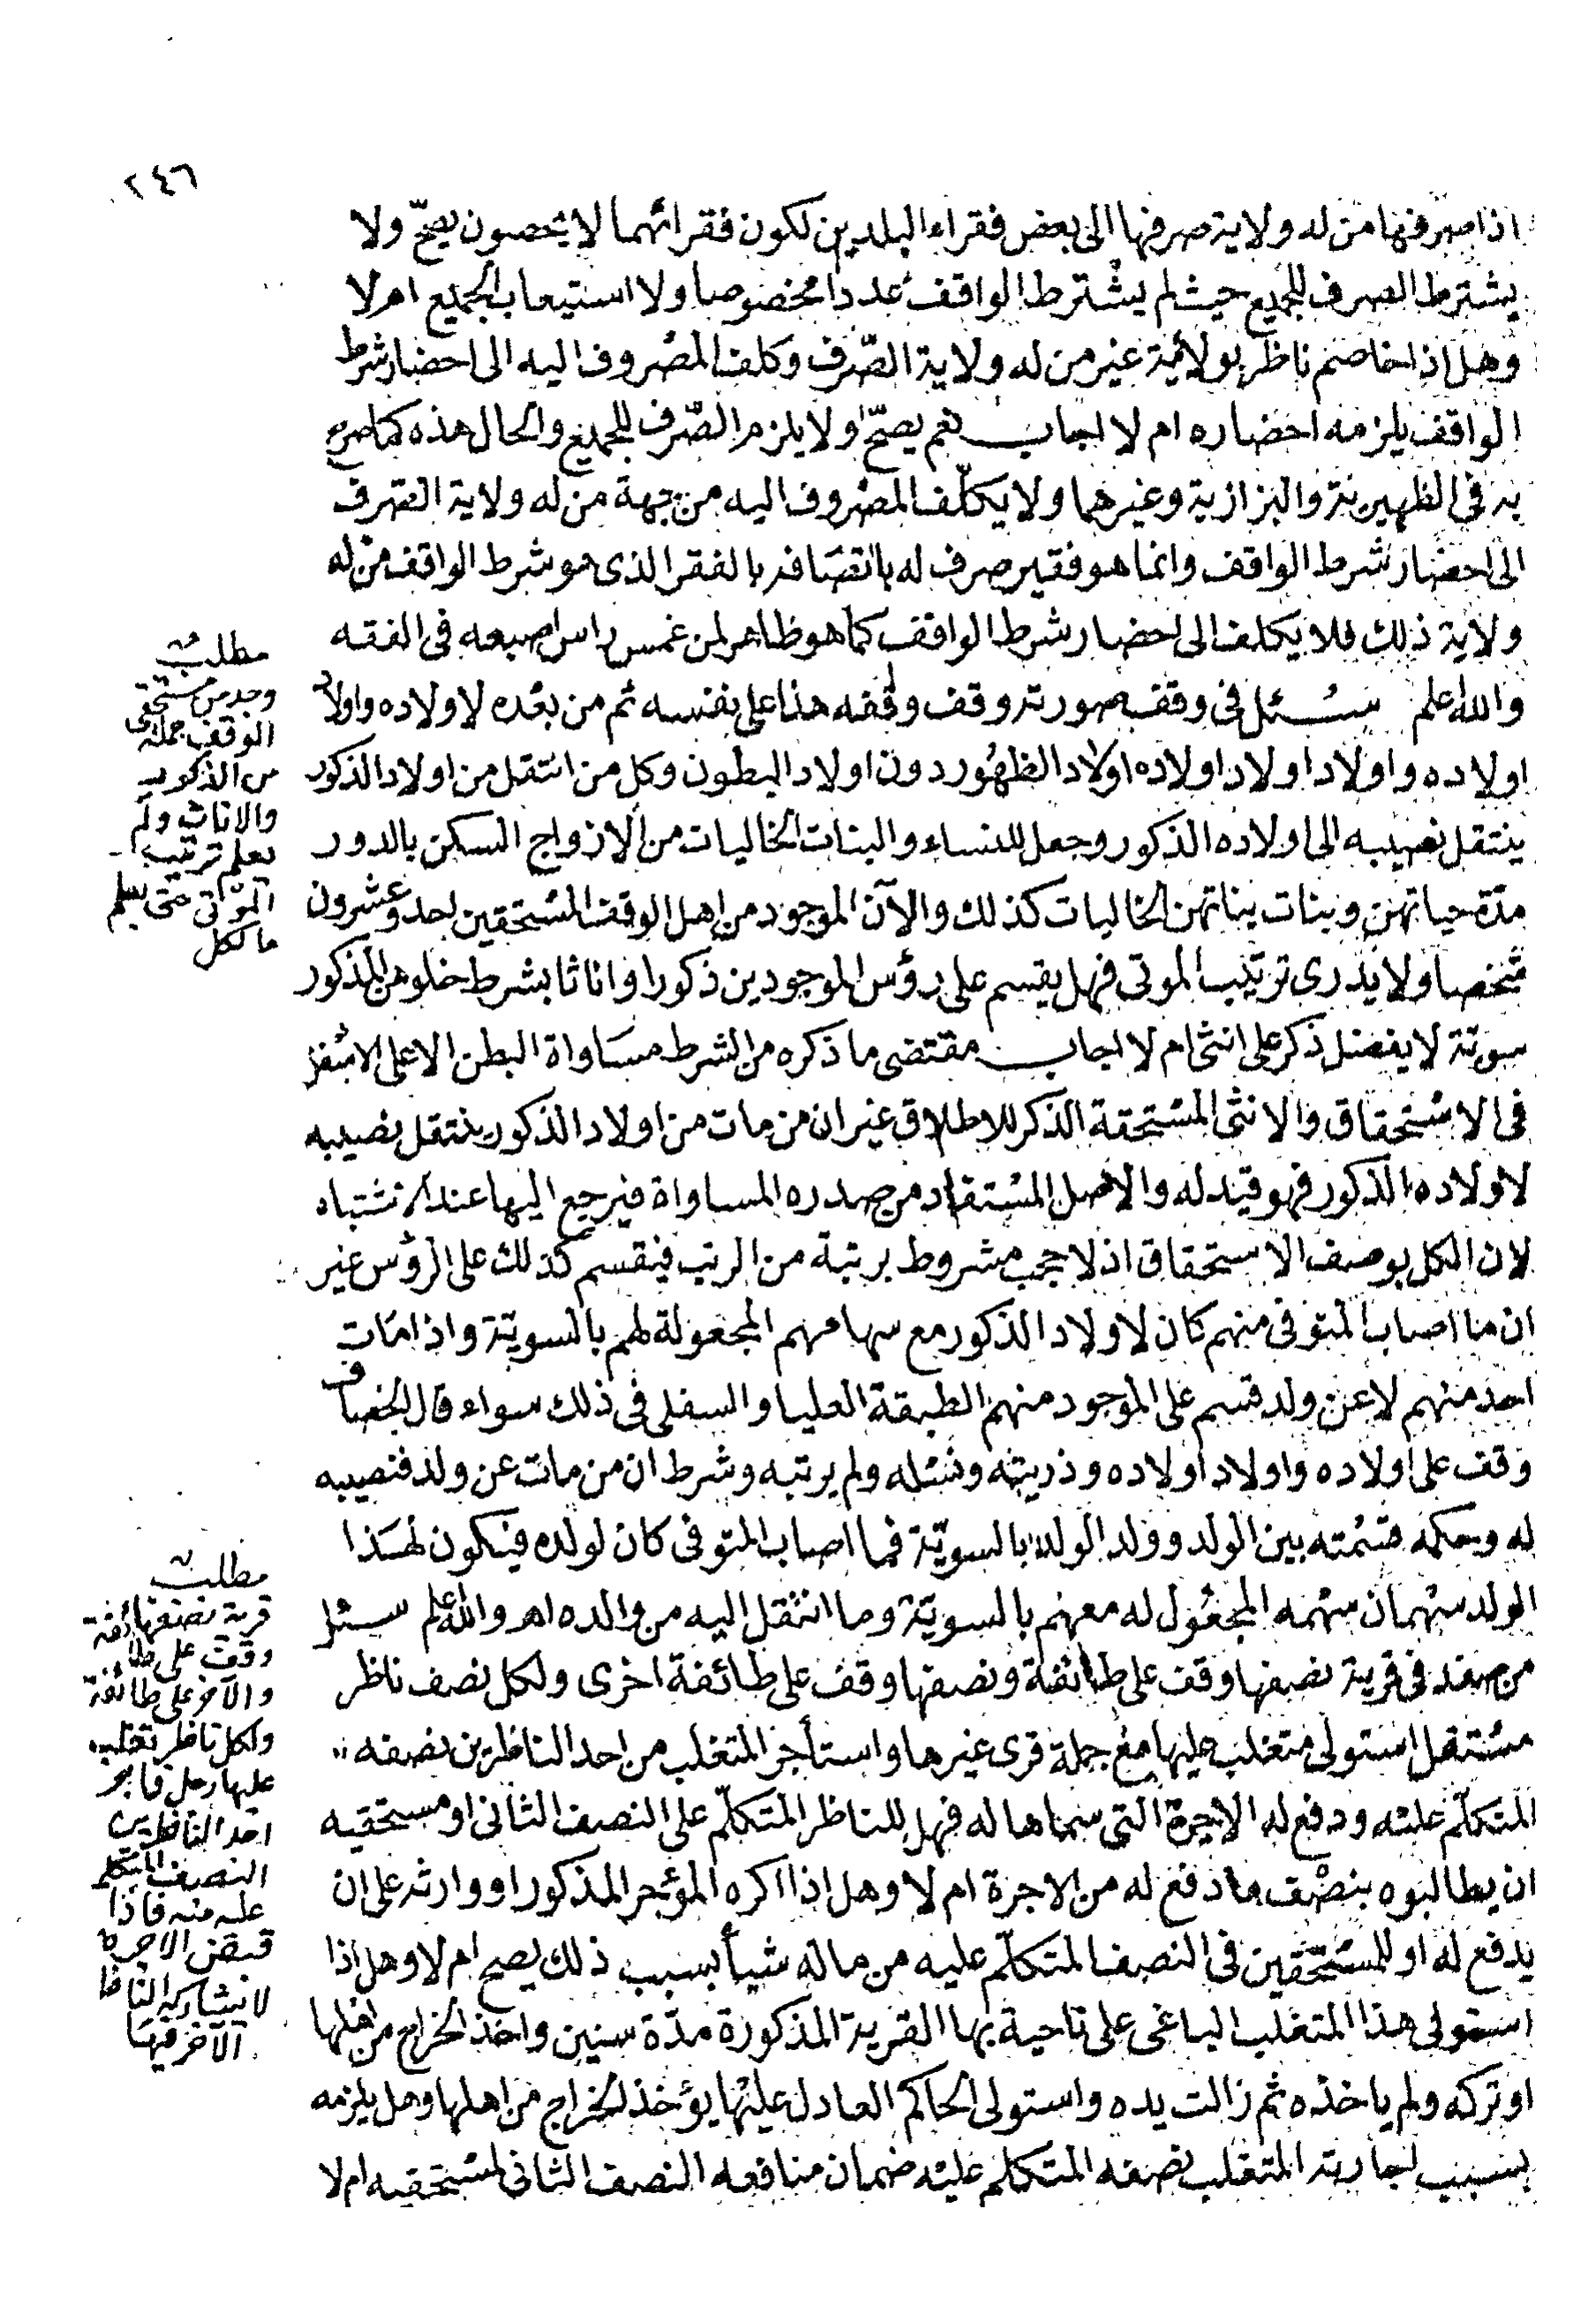 ٢٤٦
اذا صرفها من له ولاية صرفها الى بعض فقراء البلدين لكون فقرائهما لا يحصون يصحّ ولا
يشترط الصرف للجميع حيث لم يشترط الواقف عددا مخصوصا ولا استيعاب الجميع ام لا
وهل اذا خاصم ناظر بولاية غير من له ولاية الصّرف وكلف المصروف اليه الى احضار شرط
الواقف يلزمه احضاره ام لا اجاب نعم يصحّ ولا يلزم الصّرف للجميع والحال هذه كما صرح
به فى الظهيرية والبزازية وغيرهما ولا يكلّف المصروف اليه من جهة من له ولاية الصرف
الى احضار شرط الواقف وانما هو فقير صرف له باتصافه بالفقر الذى هو شرط الواقف من له
ولاية ذلك فلا يكلف الى احضار شرط الواقف كما هو ظاهر لمن غمس راس اصبعه فى الفقه
والله اعلم سئل فى وقف صورته وقف وقفه هذا على نفسه ثم من بعده لاولاده واولاد
اولاده واولاد اولاد اولاده اولاد الظهور دون اولاد البطون وكل من انتقل من اولاد الذكور
ينتقل نصيبه الى اولاده الذكور وجعل للنساء والبنات الخاليات من الازواج السكن بالدور
مدّة حياتهن وبنات بناتهن الخاليات كذلك والآن الموجود من اهل الوقف المستحقين احد وعشرون
شخصا ولا يدرى ترتيب الموتى فهل يقسم على رؤس الموجودين ذكورا واناثا بشرط خلوهن المذكور
سوية لا يفضل ذكر على انثى ام لا اجاب مقتضى ما ذكره من الشرط مساواة البطن الاعلى الاسفل
فى الاستحقاق والانثى المستحقة الذكر للاطلاق غير ان من مات من اولاد الذكور ينتقل نصيبه
لاولاده الذكور فهو قيد له والاصل المستفاد من صدره المساواة فيرجع اليها عند الاشتباه
لان الكل بوصف الاستحقاق اذ لا حجب مشروط برتبة من الرتب فينقسم كذلك على الرؤس غير
ان ما اصاب المتوفى منهم كان لاولاد الذكور مع سهامهم المجعولة لهم بالسويّة واذا مات
احد منهم لا عن ولد قسم على الموجود منهم الطبقة العليا والسفلى فى ذلك سواء قال الخصاف
وقف على اولاده واولاد اولاده وذريته ونسله ولم يرتبه وشرط ان من مات عن ولد فنصيبه
له وحكمه قسمته بين الولد وولد الولد بالسويّة فما اصاب المتوفى كان لولده فيكون لهذا
الولد سهمان سهمه المجعول له معهم بالسويّة وما انتقل اليه من والده اهـ والله اعلم سئل
من صفد فى قرية نصفها وقف على طائفة ونصفها وقف على طائفة اخرى ولكل نصف ناظر
مستقل استولى متغلب عليها مع جملة قرى غيرها واستأجر المتغلب من احد الناظرين نصفه
المتكلّم عليه ودفع له الاجرة التى سماها له فهل للناظر المتكلّم على النصف الثانى او مستحقيه
ان يطالبوه بنصف ما دفع له من الاجرة ام لا وهل اذا اكره المؤجر المذكور او وارثه على ان
يدفع له او للمستحقين فى النصف المتكلّم عليه من ماله شيأ بسبب ذلك يصح ام لا وهل اذا
استولى هذا المتغلب الباغى على ناحية بها القرية المذكورة مدّة سنين واخذ الخراج من اهلها
او تركه ولم ياخذه ثم زالت يده واستولى الحاكم العادل عليها يؤخذ الخراج من اهلها وهل يلزمه
بسبب اجارته المتغلب نصفه المتكلم عليه ضمان منافعه النصف الثانى لمستحقيه ام لا
مطلب
وجد من مستحقى
الوقف جملة
من الذكور
والاناث ولم
يعلم ترتيب
الموتى حتى يعلم
ما لكل
مطلب
قرية نصفها
وقف على طائفة
والآخر على طائفة
ولكل ناظر تغلب
عليها رجل فآجر
احد الناظرين
النصف المتكلم
عليه منه فاذا
قبض الاجرة
لا يشاركه الناظر
الآخر فيها